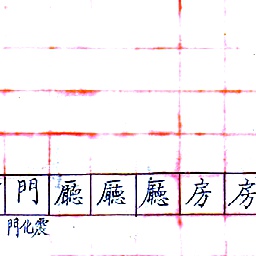 門廳廳廳房房
門化震